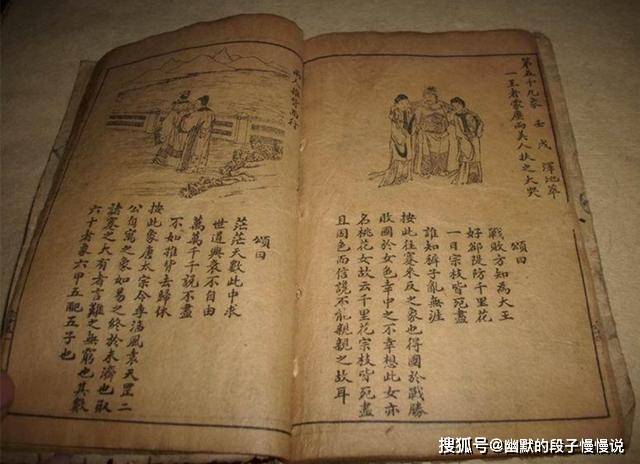 第五十九象 壬戌 澤地萃
一王者蒙塵兩美人扶之大哭
頌曰
戰敗方知為大王
好卻隄防千里花
一日宗枝皆死盡
誰知子亂無涯
按此往蹇來反之象也得國於戰勝
敗國於女色幸中之不幸想此女亦
名桃花女故云千里花宗枝皆死盡
且因色而信讒不能親親之故耳
人推背而行
頌曰
茫茫天數此中求
世道興衰不自由
萬萬千千說不盡
不如推背去歸休
按此象唐太宗令李淳風袁天罡二
公自寓之象如易之終於未濟也取
諸蹇之大有者言難之無窮也其數
六十者象六甲五配五子也
搜狐号@幽默的段子慢慢说